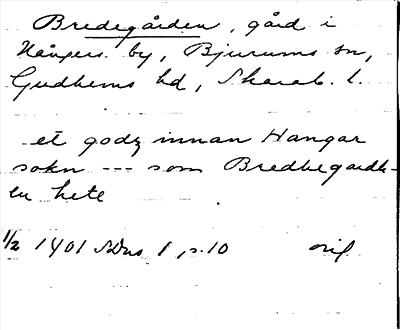 Bredegården, gård i
Hångers by, Bjurums sn,
Gudhems hd, Skarab. l.
et godz innan Hangar
sokn --- som Bredhegardh-
en hete
1/2 1401 SDns 1 p. 10 orig.